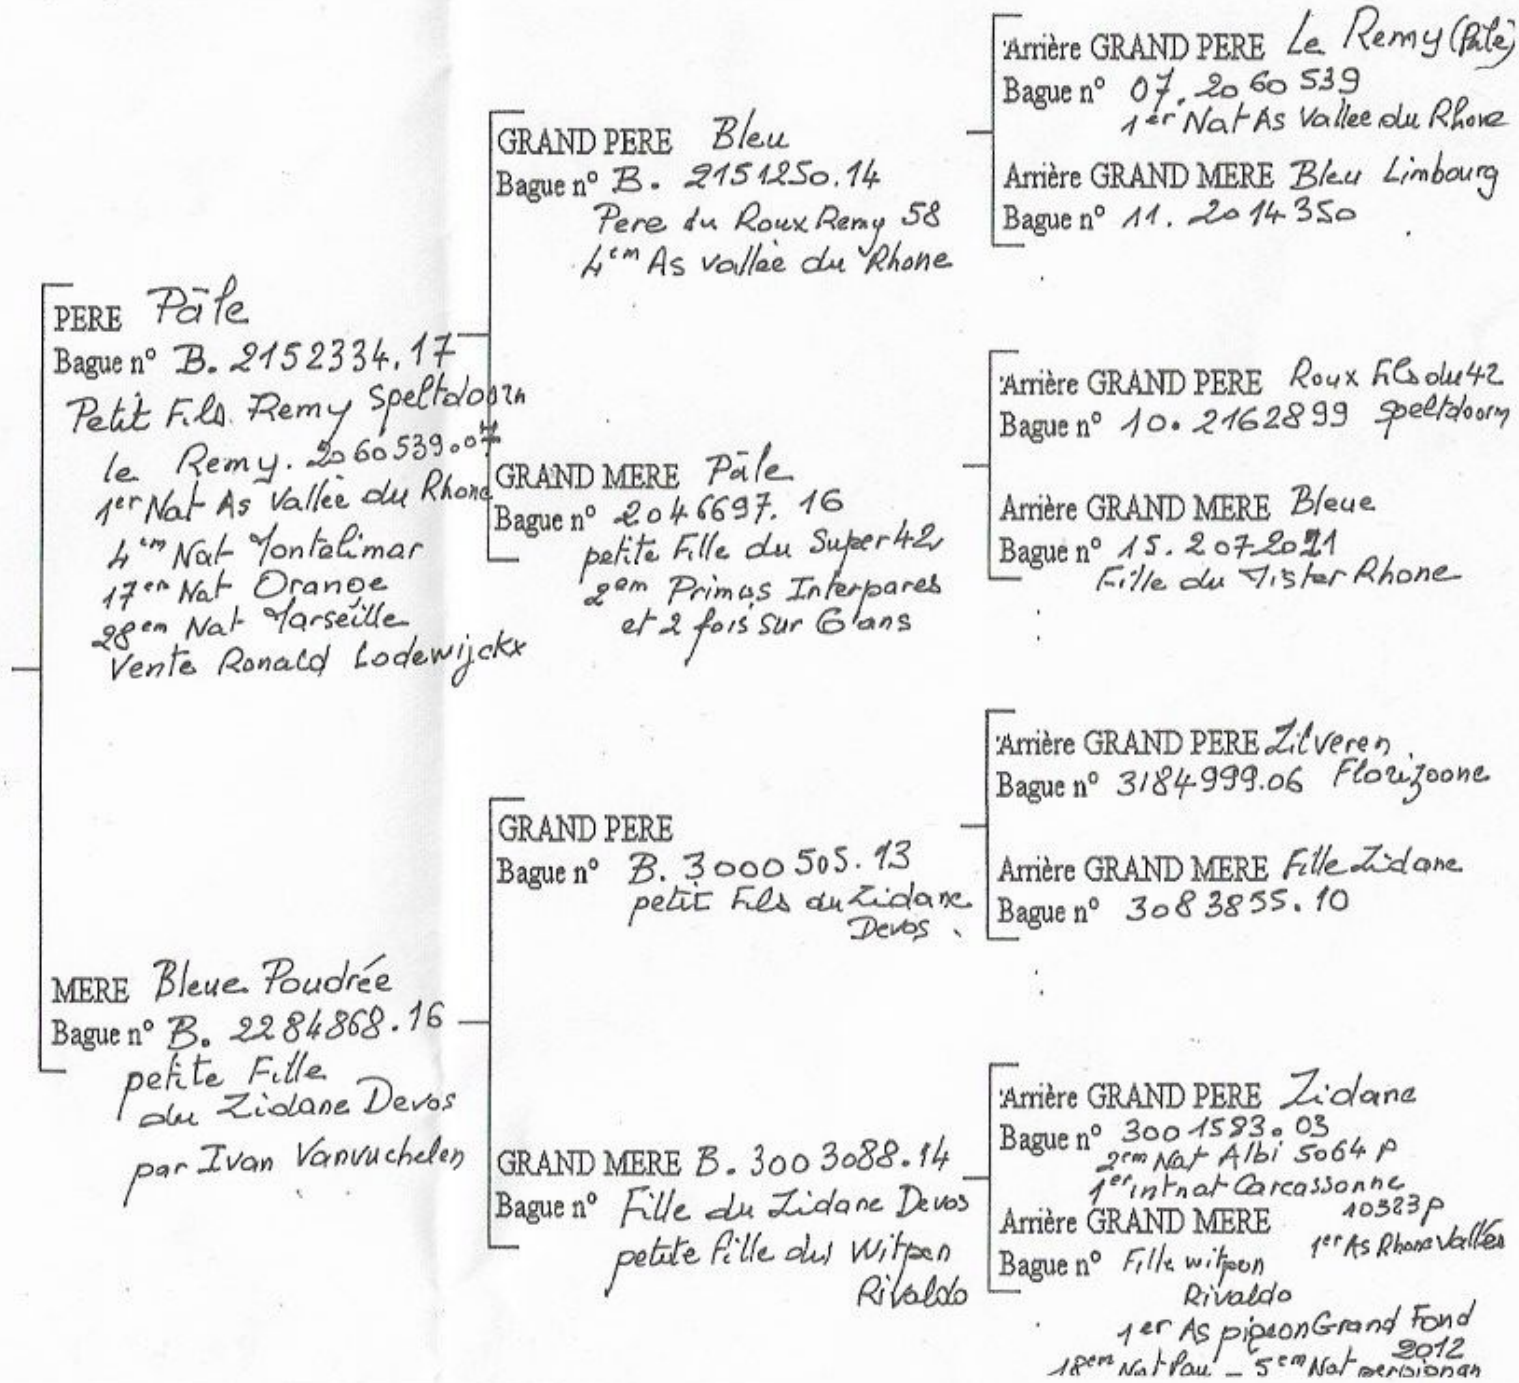 PERE Pâle
Bague n° B. 2152334.17
Petit Fils Remy Speltdoorn
le Remy. 2060539.07
1er Nat As Vallée du Rhone
4em Nat Montelimar
17em Nat Orange
28em Nat Marseille
Vente Ronald Lodewijckx
MERE Bleue Poudrée
Bague n° B. 2284868.16
petite Fille
du Zidane Devos
par Ivan Vanvuchelen
GRAND PERE Bleu
Bague n° B. 2151250.14
Pere du Roux Remy 58
4em As vallée du Rhone
GRAND MERE Pâle
Bague n° 2046697. 16
petite Fille du Super 42
2em Primus Interpares
et 2 fois sur 6 ans
GRAND PERE
Bague n° B. 3000505. 13
petit Fils du Zidane
Devos.
GRAND MERE B. 3003088.14
Bague n° Fille du Zidane Devos
petite fille du Witpen
Rivaldo
Arrière GRAND PERE Le Remy (Pâle)
Bague n° 07. 2060539
1er Nat As Vallee du Rhone
Arrière GRAND MERE Bleu Limbourg
Bague n° 11. 2014350
Arrière GRAND PERE Roux Fils du 42
Bague n° 10. 2162899 Speltdoorn
Arrière GRAND MERE Bleue
Bague n° 15. 2072021
Fille du Mister Rhone
Arrière GRAND PERE Zilveren
Bague n° 3184999.06 Florizoone
Arrière GRAND MERE Fille Zidane
Bague n° 3083855.10
Arrière GRAND PERE Zidane
Bague n° 3001583.03
2em Nat Albi 5064 P
1er intnat Carcassonne
10323p
Arrière GRAND MERE
1er As Rhone Valles
Bague n° Fille witpen
Rivaldo
1er As pigeon Grand Fond
2012
18em Nat Pau - 5em Nat perpignan